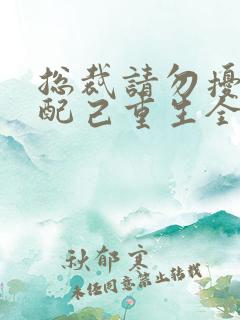 总裁請勿擾
配己重生全
秋郁寒
未经同意禁止转载